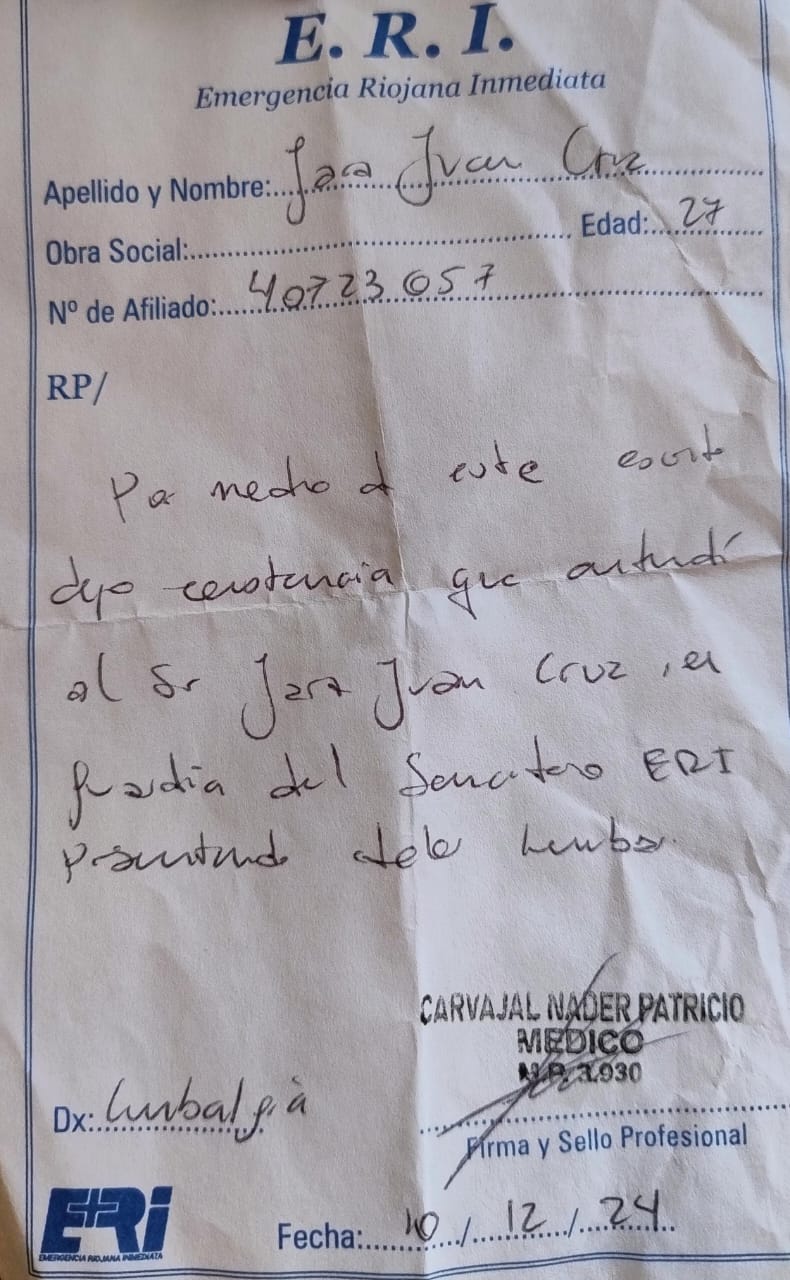 E. R. I.
Emergencia Riojana Inmediata
Apellido y Nombre: Jara Juan Cruz
Obra Social: Edad: 27
Nº de Afiliado: 40723057
RP/
Por medio de este escrito
dejo constancia que atendí
al Sr Jara Juan Cruz, en
guardia del Sanatorio ERI
presentando dolor lumbar.
CARVAJAL NADER PATRICIO
MEDICO
M.P. 3.930
Dx: Lumbalgia
Firma y Sello Profesional
ERi
EMERGENCIA RIOJANA INMEDIATA
Fecha: 10/12/24